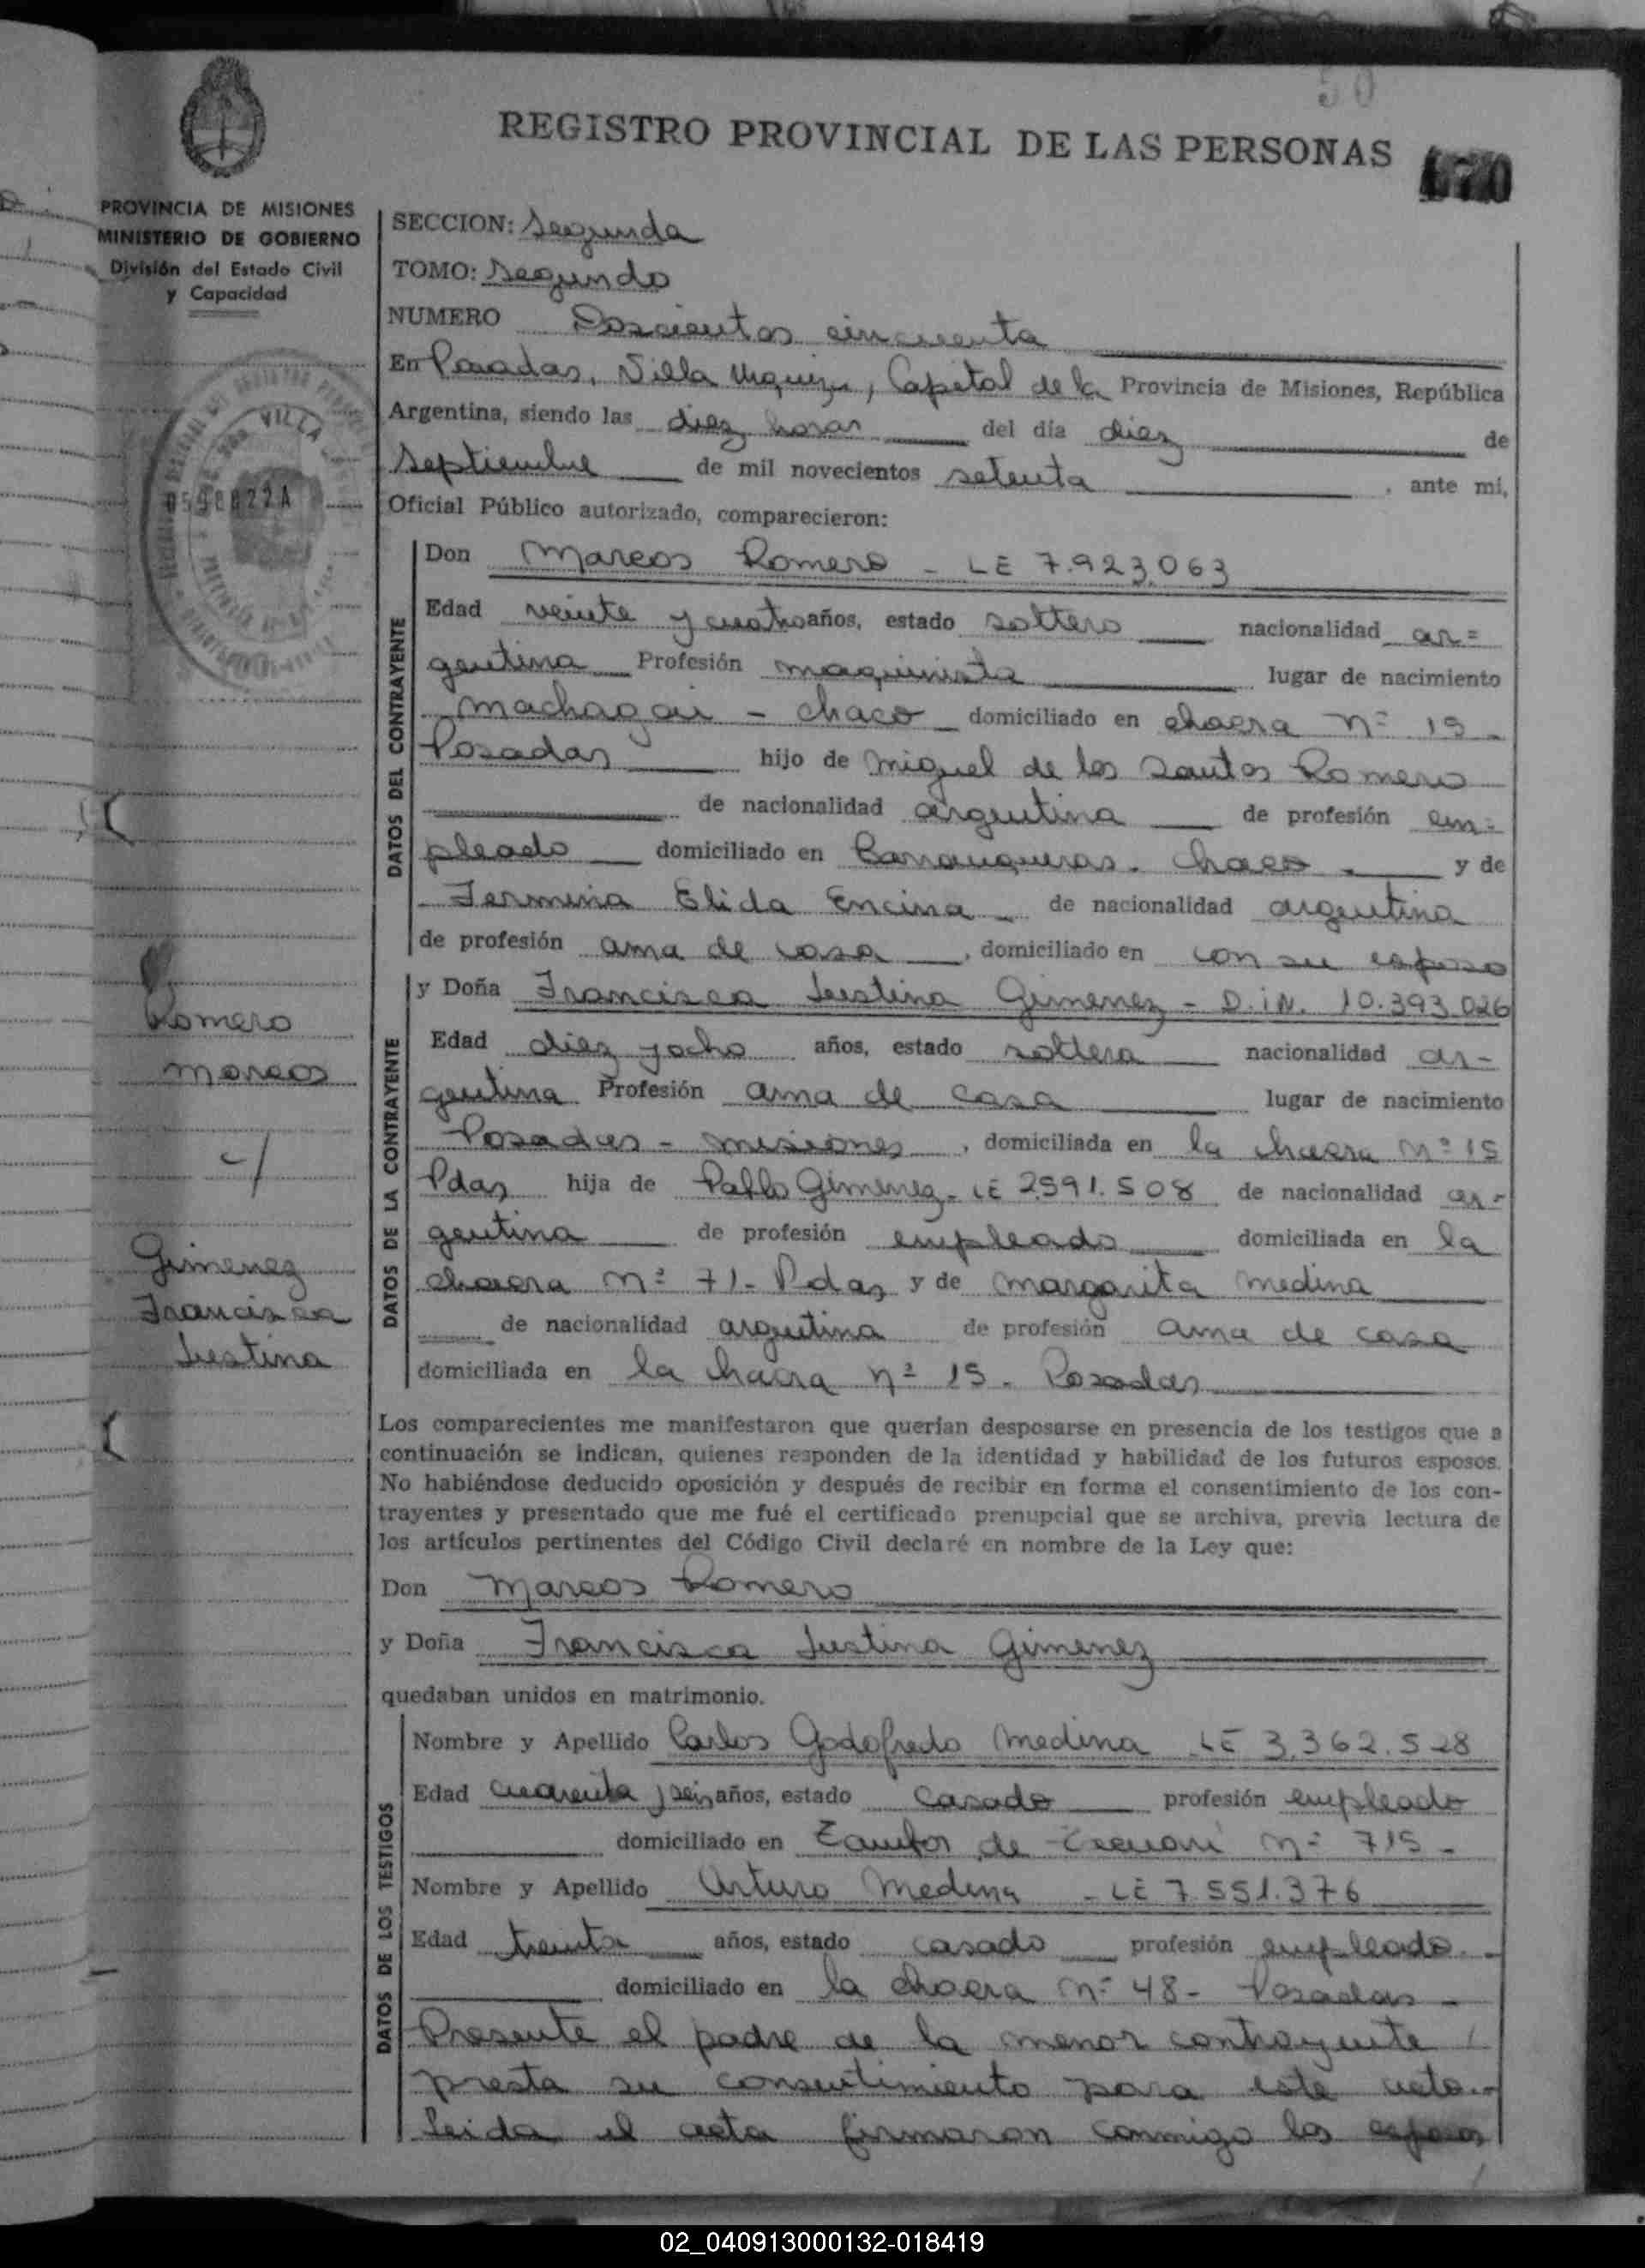 50
REGISTRO PROVINCIAL DE LAS PERSONAS
1970
PROVINCIA DE MISIONES
MINISTERIO DE GOBIERNO
División del Estado Civil
y Capacidad
VILLA
059882 2A
SECCION: Segunda
TOMO: Segundo
NUMERO Doscientos cincuenta
En Posadas, Villa Urquiza, Capital de la Provincia de Misiones, República
Argentina, siendo las diez horas del día diez de
Septiembre de mil novecientos setenta , ante mi,
Oficial Público autorizado, comparecieron:
DATOS DEL CONTRAYENTE
Don Marcos Romero - LE 7.923.063
Edad veinte y cuatro años, estado soltero nacionalidad ar=
gentina Profesión maquinista lugar de nacimiento
Machagai - Chaco domiciliado en chacra Nº 15 -
Posadas hijo de Miguel de los Santos Romero
de nacionalidad argentina de profesión em=
pleado domiciliado en Barranqueras. Chaco. y de
Fermina Elida Encina - de nacionalidad argentina
de profesión ama de casa , domiciliado en con su esposo
DATOS DE LA CONTRAYENTE
y Doña Francisca Justina Gimenez - D.N. 10.393.026
Edad diez y ocho años, estado soltera nacionalidad ar-
gentina Profesión ama de casa lugar de nacimiento
Posadas - Misiones , domiciliada en la chacra Nº 15
Pdas hija de Pablo Gimenez - LE 2.591.508 de nacionalidad ar-
gentina de profesión empleado domiciliada en la
chacra Nº 71- Pdas y de Margarita Medina
de nacionalidad argentina de profesión ama de casa
domiciliada en la chacra nº 15 - Posadas
Romero
Marcos
c/
Gimenez
Francisca
Justina
Los comparecientes me manifestaron que querían desposarse en presencia de los testigos que a
continuación se indican, quienes responden de la identidad y habilidad de los futuros esposos.
No habiéndose deducido oposición y después de recibir en forma el consentimiento de los con-
trayentes y presentado que me fué el certificado prenupcial que se archiva, previa lectura de
los artículos pertinentes del Código Civil declaré en nombre de la Ley que:
Don Marcos Romero
y Doña Francisca Justina Gimenez
quedaban unidos en matrimonio.
DATOS DE LOS TESTIGOS
Nombre y Apellido Carlos Godofredo Medina LE 3.362.528
Edad cuarenta y seis años, estado casado profesión empleado
domiciliado en de Nº 715 -
Nombre y Apellido Arturo Medina - LE 7.551.376
Edad treinta años, estado casado profesión empleado. -
domiciliado en la chacra Nº 48 - Posadas -
Presente el padre de la menor contrayente
presta su consentimiento para este acto.-
Leida el acta firmaron conmigo los esposos
02_040913000132-018419